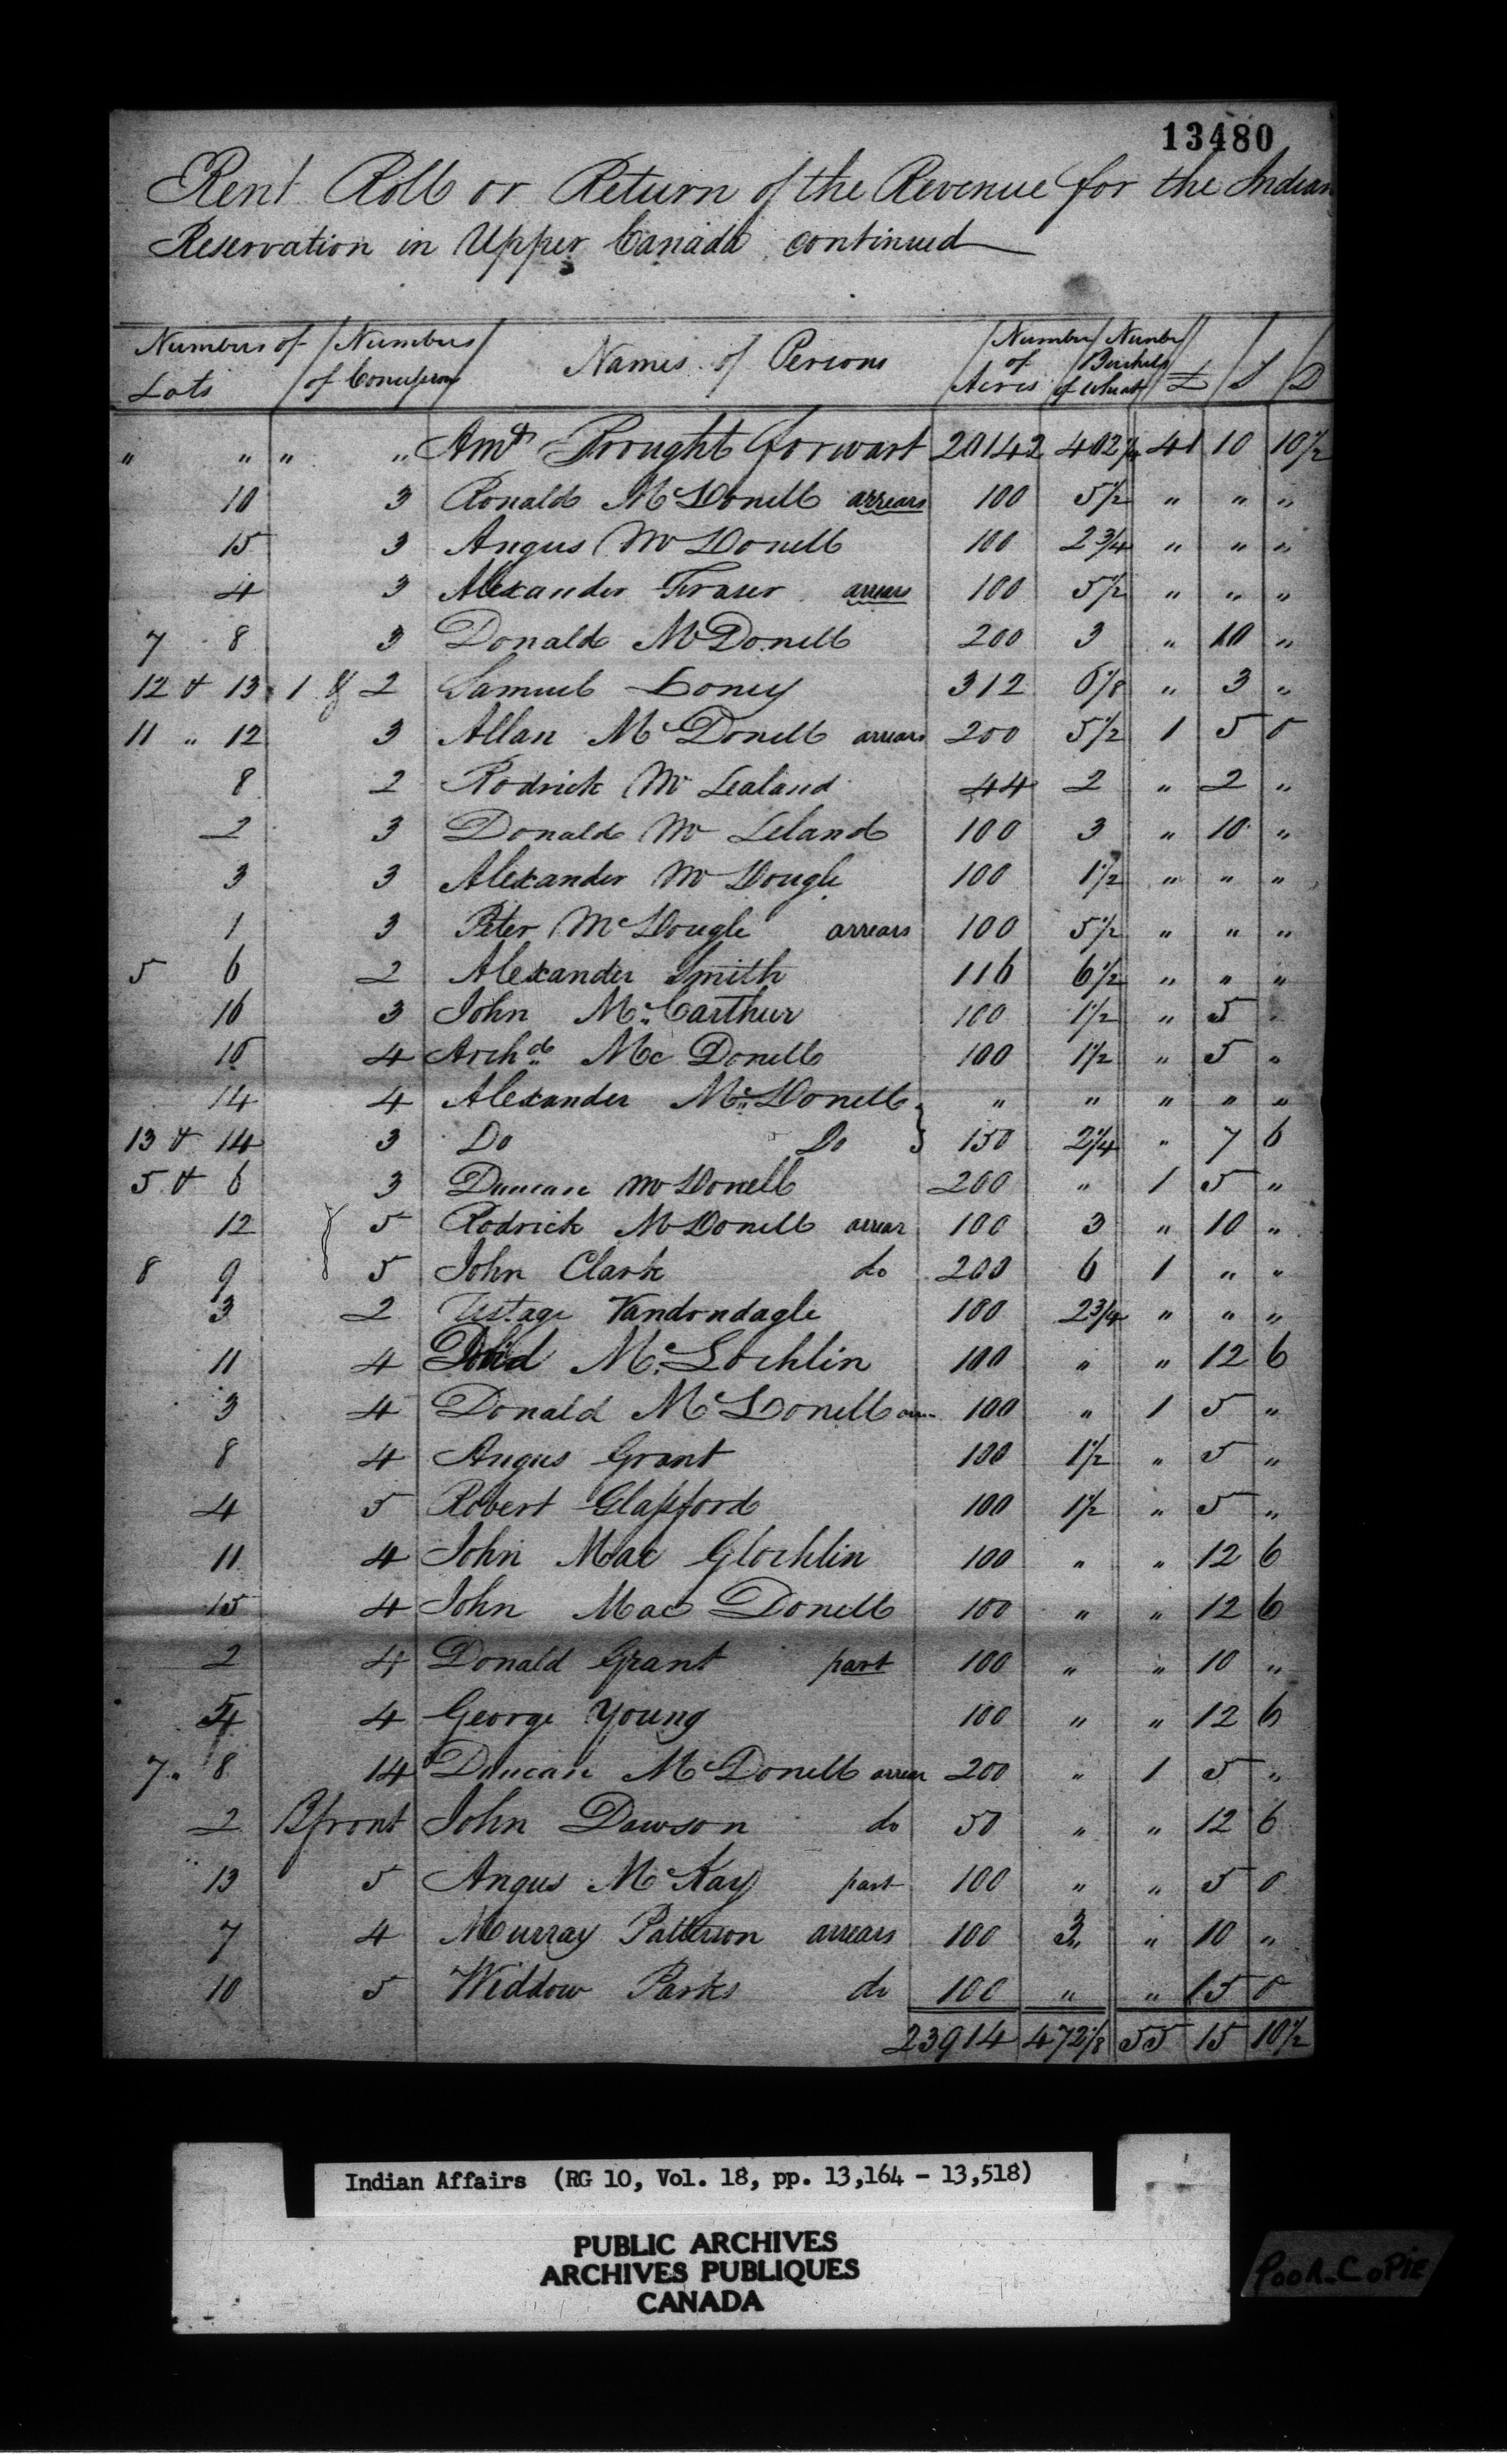 13480
Rent Roll or Return of the Revenue for the Indian
Reservation in Upper Canada continued
Numbers of Lots / Numbers of Concessions / Names of Persons / Number of Acres / Number Bushels of Wheat / £ / S / D
" " " " Amt Brought forwart 20142 402 1/4 41 10 10 1/2
10 3 Ronald McDonell arrears 100 5 1/2 " " "
15 3 Angus McDonell 100 2 3/4 " " "
4 3 Alexander Fraser arrears 100 5 1/2 " " "
7 8 3 Donald McDonell 200 3 " 10 "
12 & 13 1 & 2 Samuel Loney 312 6 1/8 " 3 "
11 " 12 3 Allan McDonell arrears 200 5 1/2 1 5 0
8 2 Rodrick Mc Lealand 44 2 " 2 "
2 3 Donald Mc Leland 100 3 " 10 "
3 3 Alexander Mc Dougle 100 1 1/2 " " "
1 3 Peter McDougle arrears 100 5 1/2 " " "
5 6 2 Alexander Smith 116 6 1/2 " " "
16 3 John McCarthur 100 1 1/2 " 5 "
10 4 Archd Mc Donell 100 1 1/2 " 5 "
14 4 Alexander McDonell " " " " "
13 & 14 3 Do Do } 150 2 1/4 " 7 6
5 & 6 3 Duncan McDonell 200 " 1 5 "
12 5 Rodrick McDonell arrear 100 3 " 10 "
8 9 5 John Clark do 200 6 1 " "
3 2 Ustage Vandondagle 100 2 3/4 " " "
11 4 McLochlin 100 " " 12 6
3 4 Donald McDonell 100 " 1 5 "
8 4 Angus Grant 100 1 1/2 " 5 "
4 5 Robert Glassford 100 1 1/2 " 5 "
11 4 John Mac Glochlin 100 " " 12 6
15 4 John Mac Donell 100 " " 12 6
2 4 Donald Grant part 100 " " 10 "
4 George Young 100 " " 12 6
7 " 8 14 Duncan McDonell arrear 200 " 1 5 "
2 Bfront John Dawson do 50 " " 12 6
13 5 Angus McKay part 100 " " 5 0
7 4 Murray Patterson arrears 100 3 " 10 "
10 5 Widdow Parks do 100 " " 15 0
23914 472 1/8 55 15 10 1/2
Indian Affairs (RG 10, Vol. 18, pp. 13,164 - 13,518)
PUBLIC ARCHIVES
ARCHIVES PUBLIQUES
CANADA
POOR-COPIE